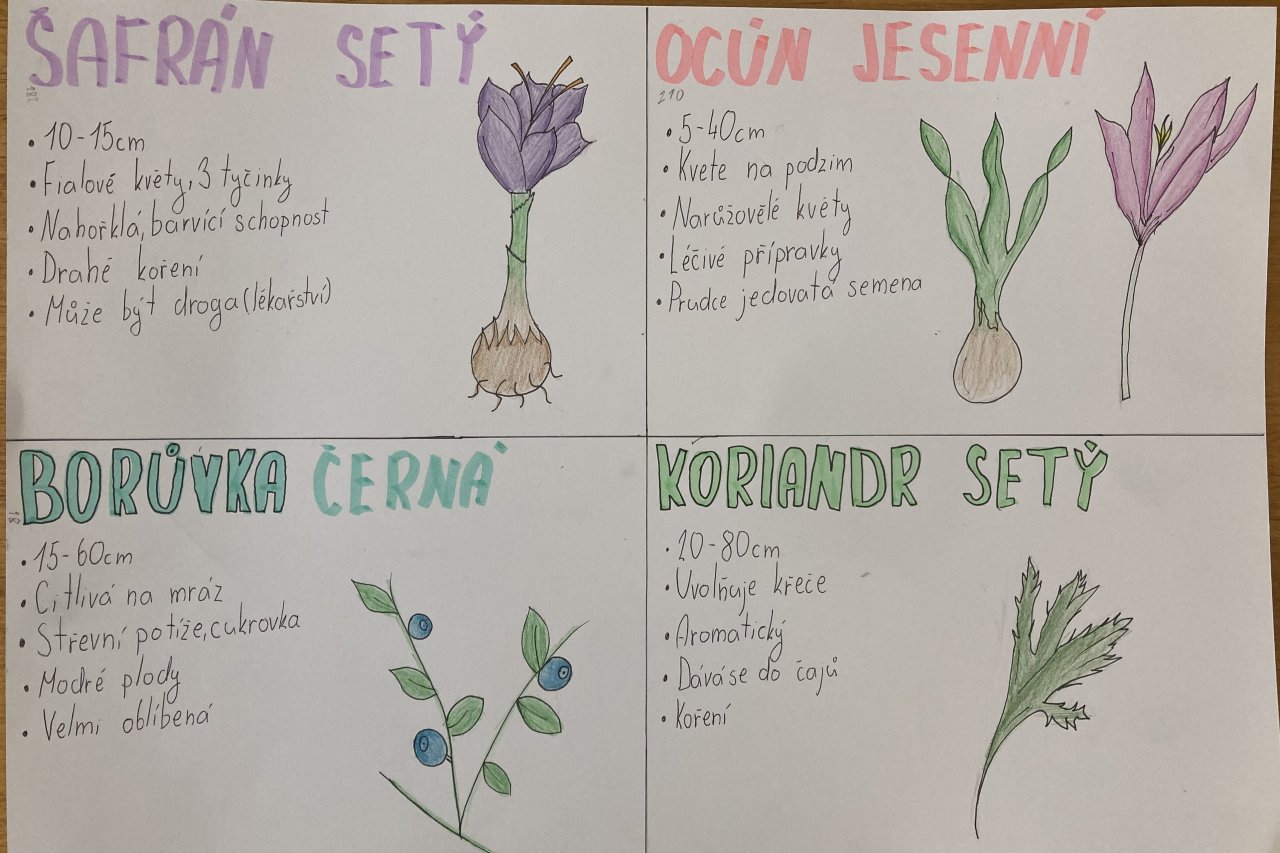 ŠAFRÁN SETÝ
182
• 10-15cm
• Fialové květy, 3 tyčinky
• Nahořklá, barvící schopnost
• Drahé koření
• Může být droga (lékařství)
OCÚN JESENNÍ
210
• 5-40cm
• Kvete na podzim
• Narůžovělé květy
• Léčivé přípravky
• Prudce jedovatá semena
BORŮVKA ČERNÁ
18
• 15-60cm
• Citlivá na mráz
• Střevní potíže, cukrovka
• Modré plody
• Velmi oblíbená
KORIANDR SETÝ
• 20-80cm
• Uvolňuje křeče
• Aromatický
• Dává se do čajů
• Koření